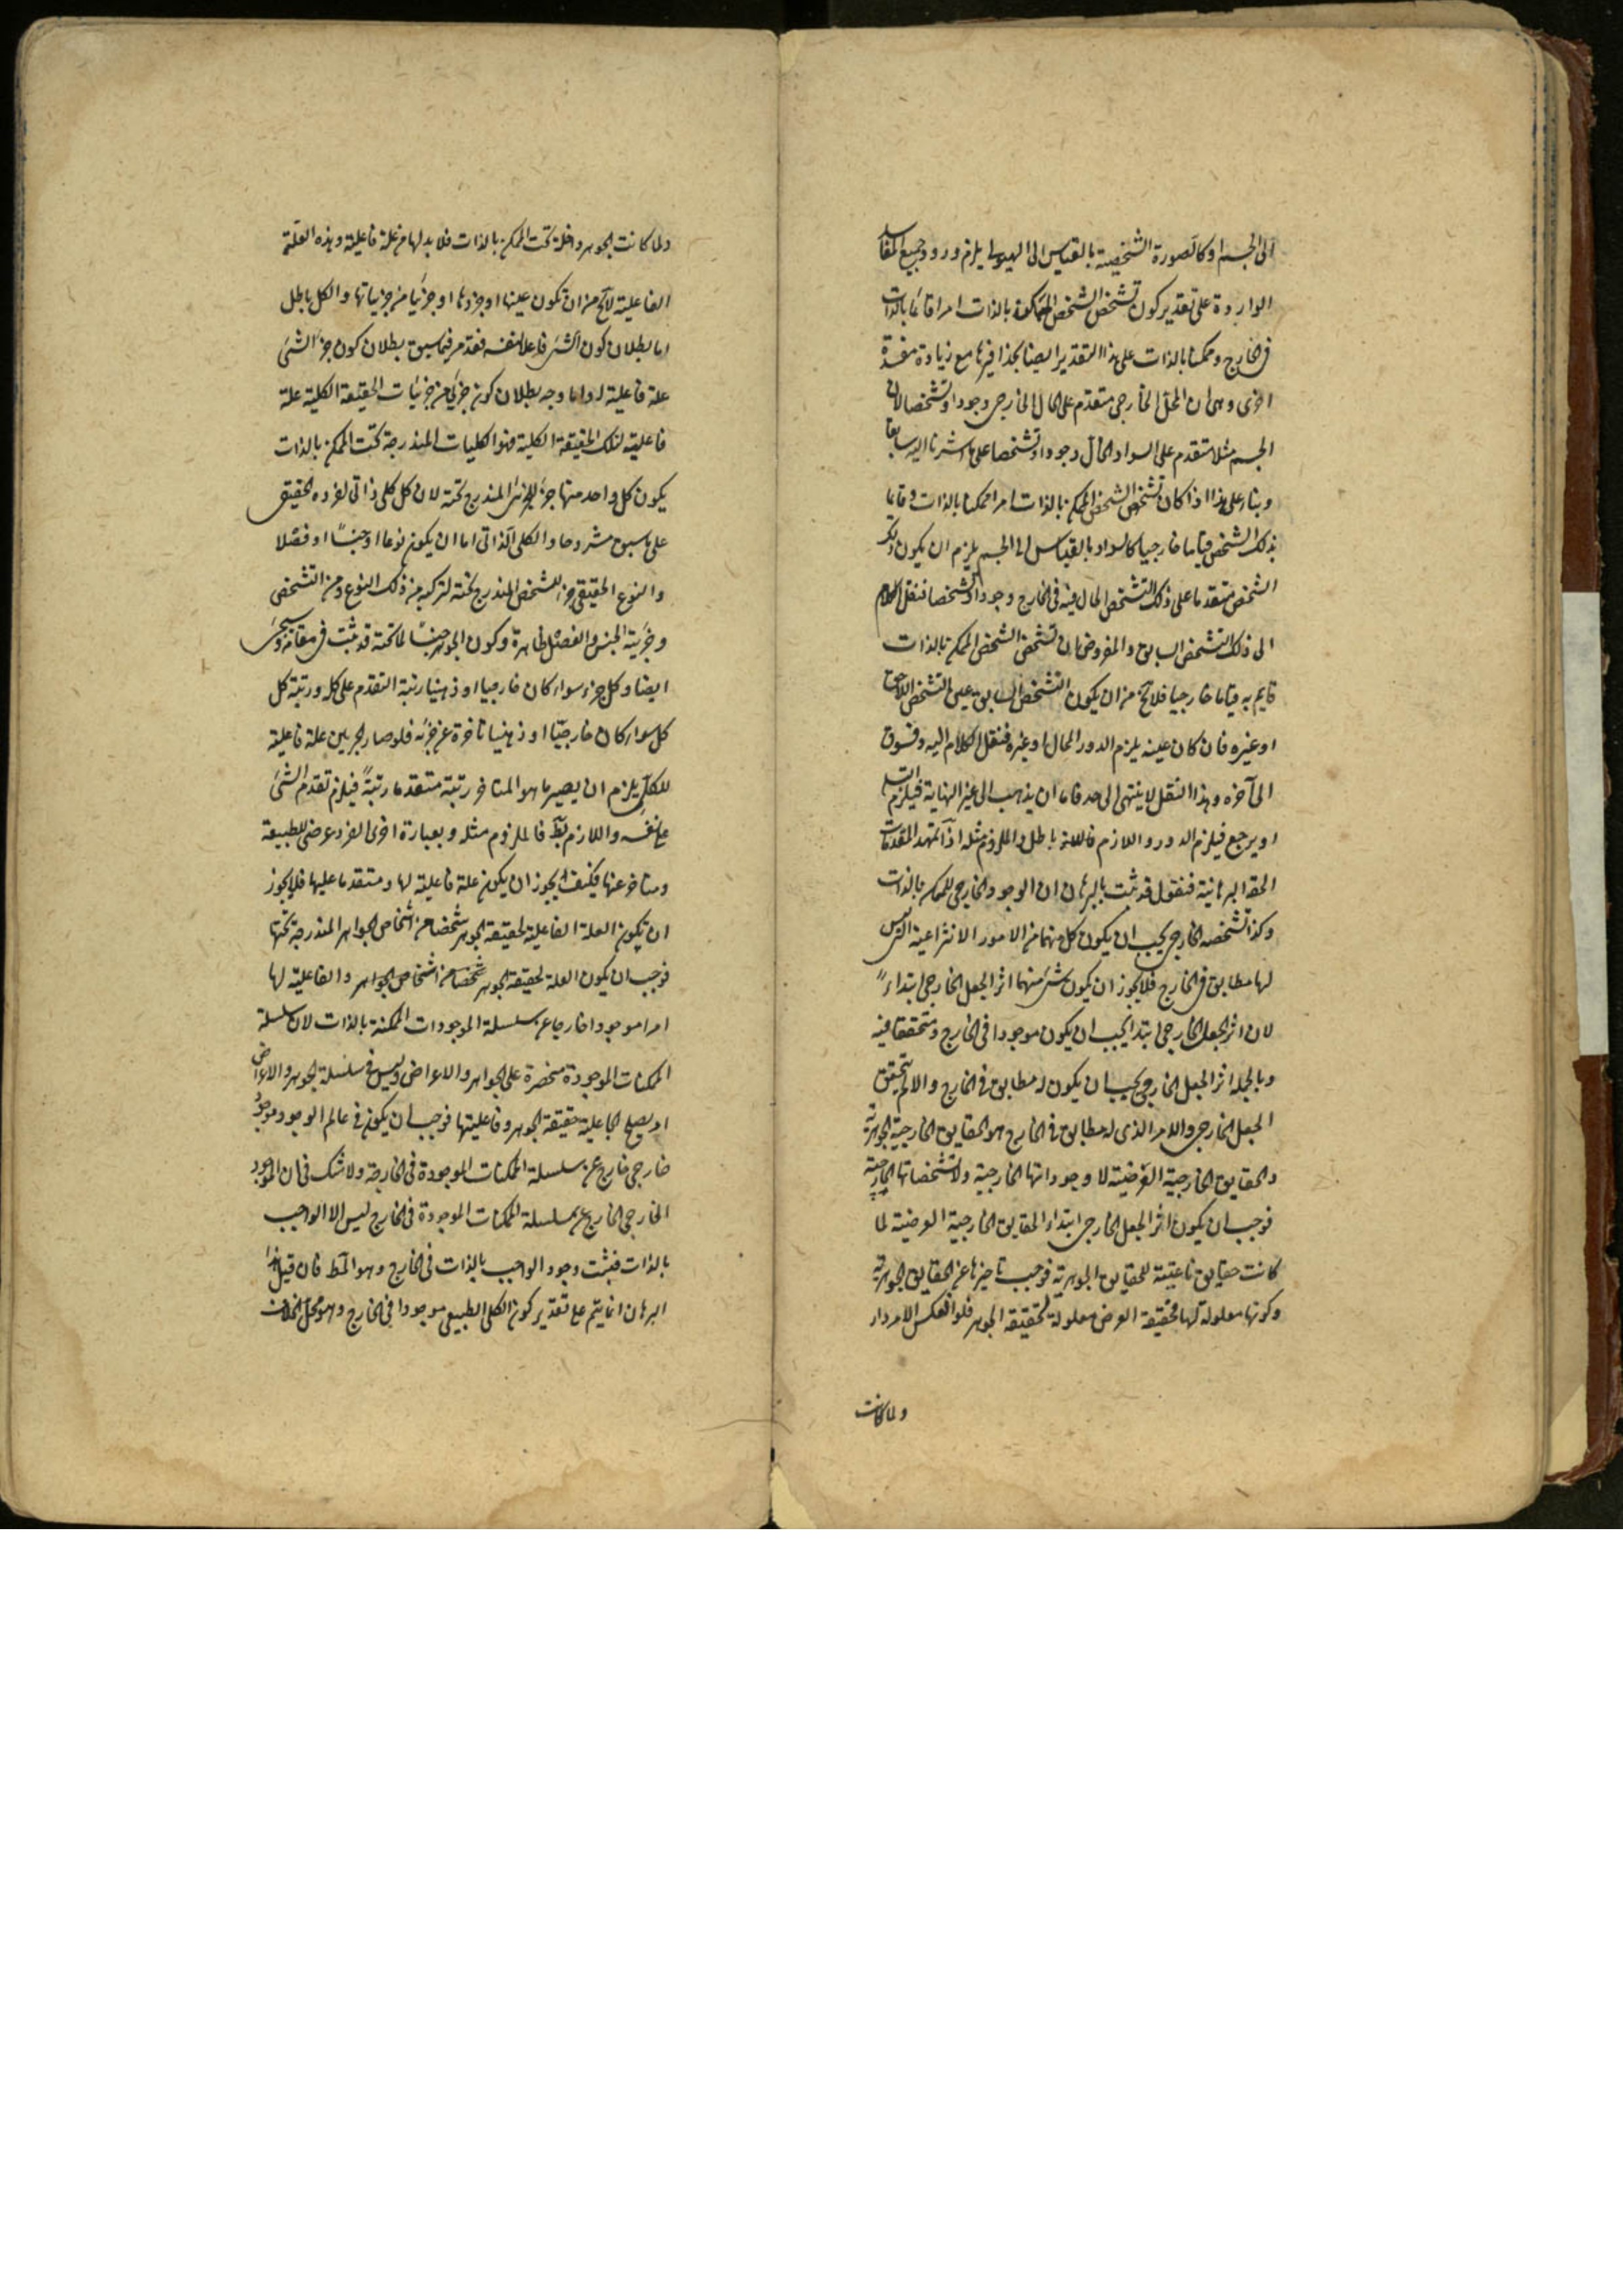 الى الجسم او كالصورة الشخصية بالقياس الى الهيولى يلزم ورود جميع المفاسد
الواردة على تقدير كون تشخص الشخص الممكن بالذات امرا قائما بالذات
فى الخارج وممكنا بالذات على هذا التقدير ايضا بحذافيرها مع زيادة مفسدة
اخرى وهى ان المحل الخارجى متقدم على الحال الخارجى وجودا وتشخصا لان
الجسم مثلا متقدم على السواد الحال وجودا وتشخصا على ما اشرنا اليه سابقا
وبناء على هذا اذا كان تشخص الشخص الممكن بالذات امرا ممكنا بالذات وقايما
بذلك الشخص قياما خارجيا كالسواد بالقياس الى الجسم يلزم ان يكون ذلك
الشخص متقدما على ذلك التشخص الحال فيه فى الخارج وجودا وتشخصا فننقل الكلام
الى ذلك التشخص السابق والمفروض ان تشخص الشخص الممكن بالذات
قايم به قياما خارجيا فلا يخ من ان يكون التشخص السابق عين التشخص اللاحق
او غيره فان كان عينه يلزم الدور المحال او غيره فننقل الكلام اليه ونسوق
الى آخره وهذا النقل لا ينتهى الى حد فاما ان يذهب الى غير النهاية فيلزم التسلسل
او يرجع فيلزم الدور واللازم باطل والملزوم مثله اذا تمهد المقدمات
الحقة البرهانية فنقول قد ثبت بالبرهان ان الوجود الخارجى للممكن بالذات
وكذا تشخصه الخارجى يجب ان يكون كل منهما من الامور الانتزاعية التى ليس
لها مطابق فى الخارج فلا يجوز ان يكون شئ منهما اثر الجعل الخارجى ابتداءً
لان اثر الجعل الخارجى ابتداء يجب ان يكون موجودا فى الخارج ومتحققا فيه
وبالجملة اثر الجعل الخارجى يجب ان يكون له مطابق فى الخارج والا لم يتحقق
الجعل الخارجى والامر الذى له مطابق فى الخارج هو الحقايق الخارجية الجوهرية
والحقايق الخارجية العرضية لا وجوداتها الخارجية ولا تشخصاتها الخارجية
فوجب ان يكون اثر الجعل الخارجى ابتداء الحقايق الخارجية العرضية لما
كانت حقايق ناعتية للحقايق الجوهرية فوجب تاخيرها عن الحقايق الجوهرية
وكونها معلولة لها فحقيقة العرض معلولة لحقيقة الجوهر فلو انعكس الامر دار
ولما كانت
ولما كانت الجوهر داخلة تحت الممكن بالذات فلا بد لها من علة فاعلية وهذه العلة
الفاعلية لا يخ من ان تكون عينها او جزءها او جزئيا من جزئياتها والكل باطل
اما بطلان كون الشئ فاعلا لنفسه فقد مر فيما سبق بطلان كون جزء الشئ
علة فاعلية له واما وجه بطلان كون جزئى من جزئيات الحقيقة الكلية علة
فاعلية لتلك الحقيقة الكلية فهو الكليات المندرجة تحت الممكن بالذات
يكون كل واحد منها جزء للجزئى المندرج تحته لان كل كلى ذاتى لفرده الحقيقى
على ما سبق مشروحا والكلى الذاتى اما ان يكون نوعا او جنسًا او فصلا
والنوع الحقيقى جزء للشخص المندرج تحته لتركبه من ذلك النوع ومن التشخص
وجزئية الجنس والفصل ظاهرة وكون الجوهر جنسًا لما تحته قد ثبت فى مقامه وسيجئ
ايضا وكل جزء سواء كان خارجيا او ذهنيا رتبة التقدم على كله ورتبة كل
كل سواء كان خارجيّا او ذهنيا تاخرة عن جزئه فلو صار الجزئى علة فاعلية
للكلى يلزم ان يصير ما هو المتاخر رتبة متقدما رتبةً فيلزم تقدم الشئ
على نفسه واللازم بط فالملزوم مثله وبعبارة اخرى الفرد عرضى للطبيعة
ومتاخر عنها فكيف يجوز ان يكون علة فاعلية لها ومتقدما عليها فلا يجوز
ان يكون العلة الفاعلية لحقيقة الجوهر شخصا من اشخاص الجواهر المندرجة تحتها
فوجب ان يكون العلة لحقيقة الجوهر شخصا من اشخاص الجواهر والفاعلية لها
امرا موجودا خارجا عن سلسلة الموجودات الممكنة بالذات لان سلسلة
الممكنات الموجودة منحصرة على الجواهر والاعراض وليس فى سلسلة الجوهر والاعراض
امر يصلح لجاعلية حقيقة الجوهر وفاعليتها فوجب ان يكون فى عالم الوجود موجود
خارجى خارج عن سلسلة الممكنات الموجودة فى الخارجة ولا شك فى ان الموجود
الخارجى الخارج عن سلسلة الممكنات الموجودة فى الخارج ليس الا الواجب
بالذات فيثبت وجود الواجب بالذات فى الخارج وهو المط فان قيل هذا
البرهان انما يتم على تقدير كون الكلى الطبيعى موجودا فى الخارج وهو محل الخلاف